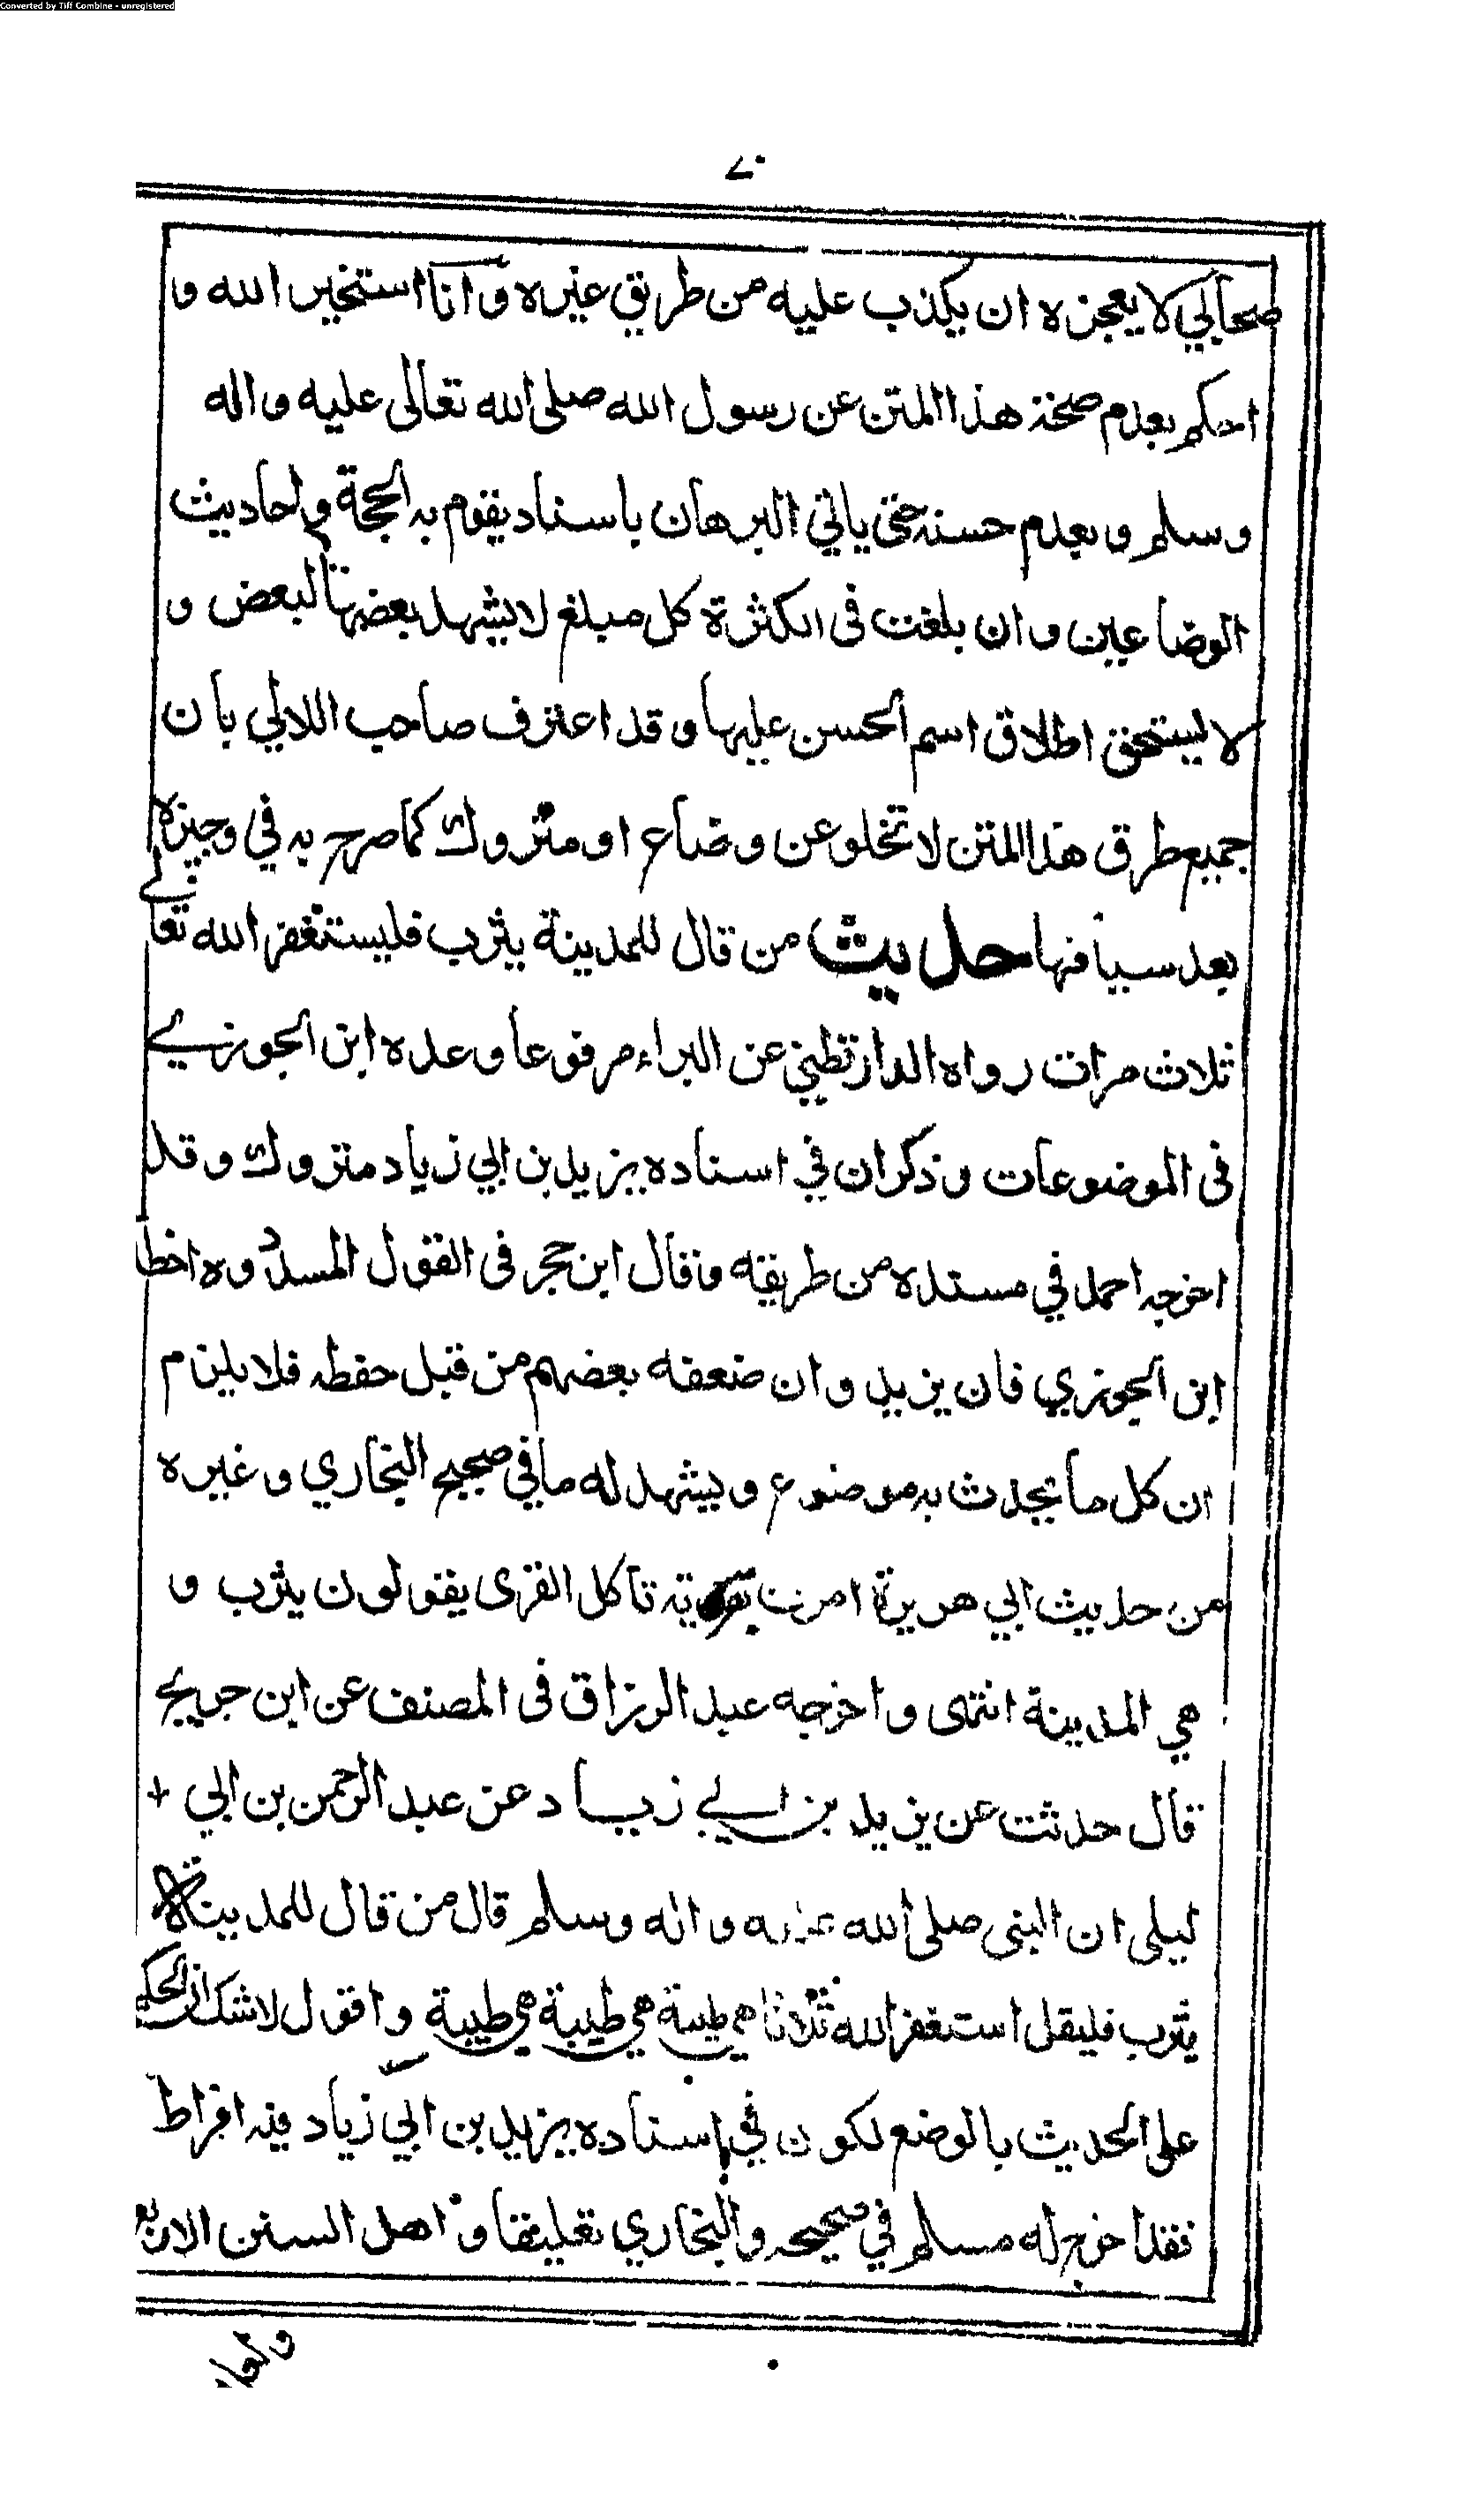 Converted by Tiff Combine - unregistered
٧٠
صحابي لا يعجزه ان يكذب عليه من طريق غيره وانا استخير الله و
احكم بعدم صحة هذا المتن عن رسول الله صلى الله تعالى عليه واله
وسلم وبعدم حسنه حتى ياتي البرهان باسناد يقوم به الحجة واحاديث
الوضاعين وان بلغت فى الكثرة كل مبلغ لا يشهد بعضها لبعض و
لا يستحق اطلاق اسم الحسن عليها وقد اعترف صاحب اللالي بان
جميع طرق هذا المتن لا تخلو عن وضاع او متروك كما صرح به في وجيزه
بعد سياقها حديث من قال للمدينة يثرب فليستغفر الله تعالے
ثلاث مرات رواه الدارقطني عن البراء مرفوعا وعده ابن الجوزي
فى الموضوعات وذكر ان في اسناده يزيد بن ابي زياد متروك وقد
اخرجه احمد في مسنده من طريقه وقال ابن حجر فى القول المسدد وه اخطا
ابن الجوزي فان يزيد وان ضعفه بعضهم من قبل حفظه فلا يلزم
ان كل ما يحدث به موضوع ويشهد له ما في صحيح البخاري وغيره
من حديث ابي هريرة امرت بقرية تاكل القرى يقولون يثرب و
هي المدينة انتهى واخرجه عبد الرزاق فى المصنف عن ابن جريج
قال حدثت عن يزيد بن ابي زياد عن عبد الرحمن بن ابي +
ليلى ان النبى صلى الله عليه واله وسلم قال من قال للمدينة
يثرب فليقل استغفر الله ثلاثا هي طيبة هي طيبة هي طيبة واقول لا شك ان الحكم
على الحديث بالوضع لكون في اسناده يزيد بن ابي زياد فيه افراط
فقد اخرج له مسلم في صحيحه والبخاري تعليقا و اهل السنن الاربع